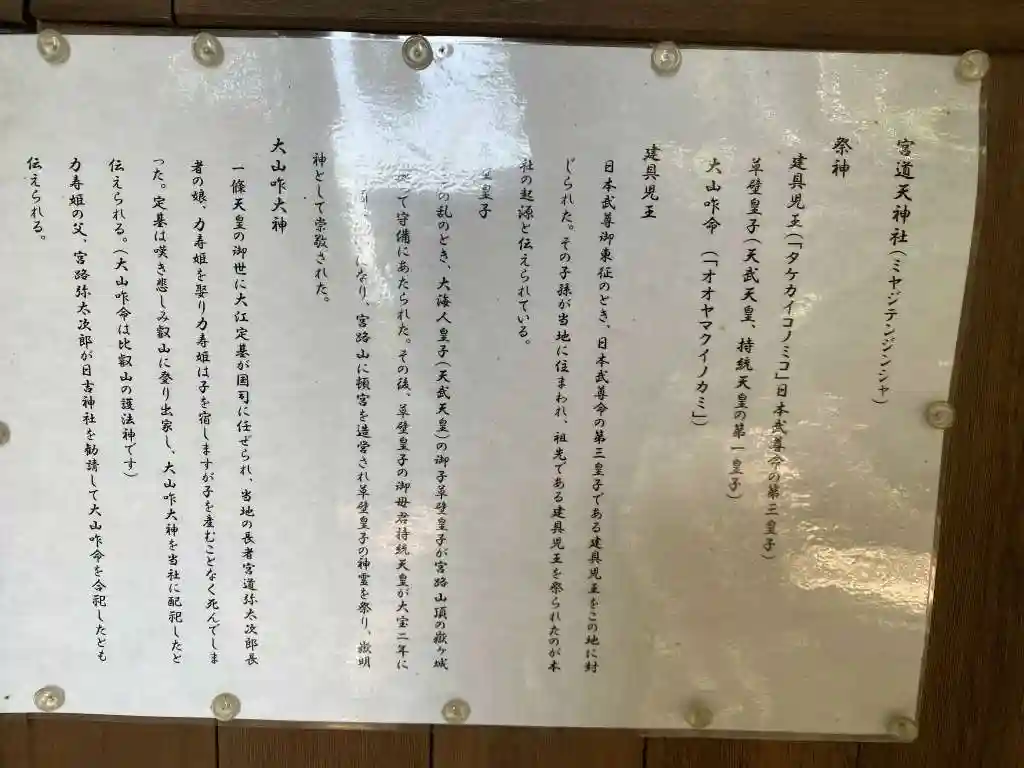 宮道天神社（ミヤジテンジンシャ）
祭神
建具児王（「タケカイコノミコ」日本武尊命の第三皇子）
草壁皇子（天武天皇、持統天皇の第一皇子）
大山咋命　（「オオヤマクイノカミ」）
建具児王
日本武尊御東征のとき、日本武尊命の第三皇子である建具児王をこの地に封
じられた。その子孫が当地に住まわれ、祖先である建具児王を祭られたのが本
社の起源と伝えられている。
皇子
の乱のとき、大海人皇子（天武天皇）の御子草壁皇子が宮路山頂の嶽ヶ城
って守備にあたられた。その後、草壁皇子の御母君持統天皇が大宝二年に
なり、宮路山に頓宮を造営され草壁皇子の神霊を祭り、嶽明
神として崇敬された。
大山咋大神
一條天皇の御世に大江定基が国司に任ぜられ、当地の長者宮道弥太次郎長
者の娘、力寿姫を娶り力寿姫は子を宿しますが子を産むことなく死んでしま
った。定基は嘆き悲しみ叡山に登り出家し、大山咋大神を当社に配祀したと
伝えられる。（大山咋命は比叡山の護法神です）
力寿姫の父、宮路弥太次郎が日吉神社を勧請して大山咋命を合祀したとも
伝えられる。